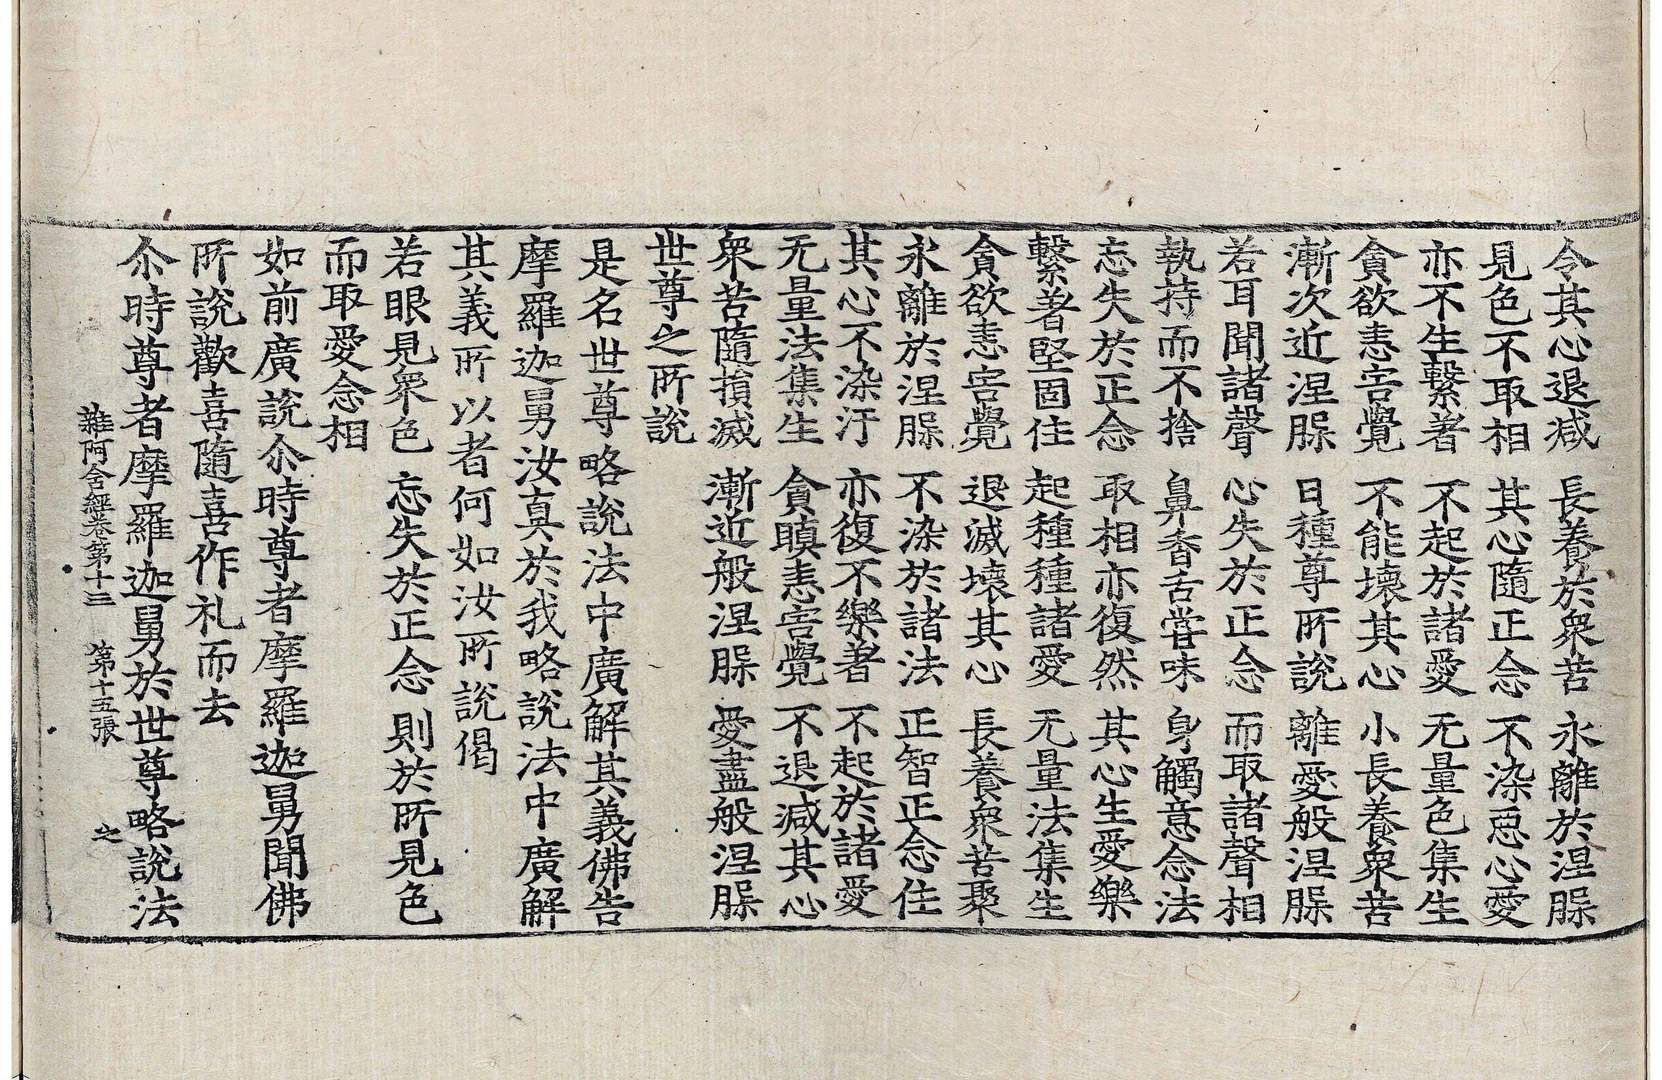 令其心退減　長養於衆苦　永離於涅槃
見色不取相　其心隨正念　不染惡心愛
亦不生繫著　不起於諸愛　无量色集生
貪欲恚害覺　不能壞其心　小長養衆苦
漸次近涅槃　日種尊所說　離愛般涅槃
若耳聞諸聲　心失於正念　而取諸聲相
執持而不捨　鼻香舌甞味　身觸意念法
忘失於正念　取相亦復然　其心生愛樂
繫著堅固住　起種種諸愛　无量法集生
貪欲恚害覺　退減壞其心　長養衆苦聚
永離於涅槃　不染於諸法　正智正念住
其心不染汙　亦復不樂著　不起於諸愛
无量法集生　貪瞋恚害覺　不退減其心
衆苦隨損滅　漸近般涅槃　愛盡般涅槃
世尊之所說
是名世尊略說法中廣解其義佛告
摩羅迦舅汝真於我略說法中廣解
其義所以者何如汝所說偈
若眼見衆色　忘失於正念　則於所見色
而取愛念相
如前廣說尒時尊者摩羅迦舅聞佛
所說歡喜隨喜作礼而去
尒時尊者摩羅迦舅於世尊略說法
雜阿含經卷第十三　第十五張　之